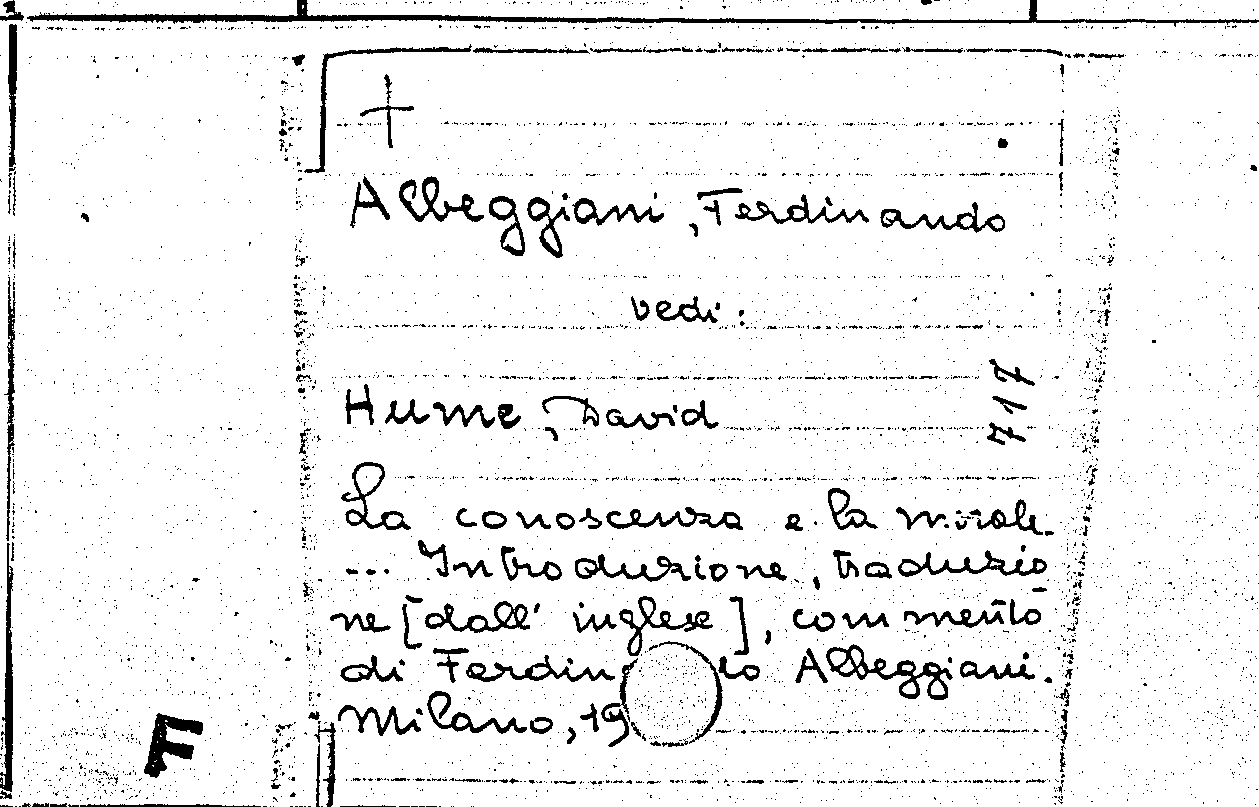 +
Albeggiani, Ferdinando
vedi:
Hume, David
717
La conoscenza e la morale
... Introduzione, traduzio
ne [dall' inglese], commento
di Albeggiani.
Milano,
F